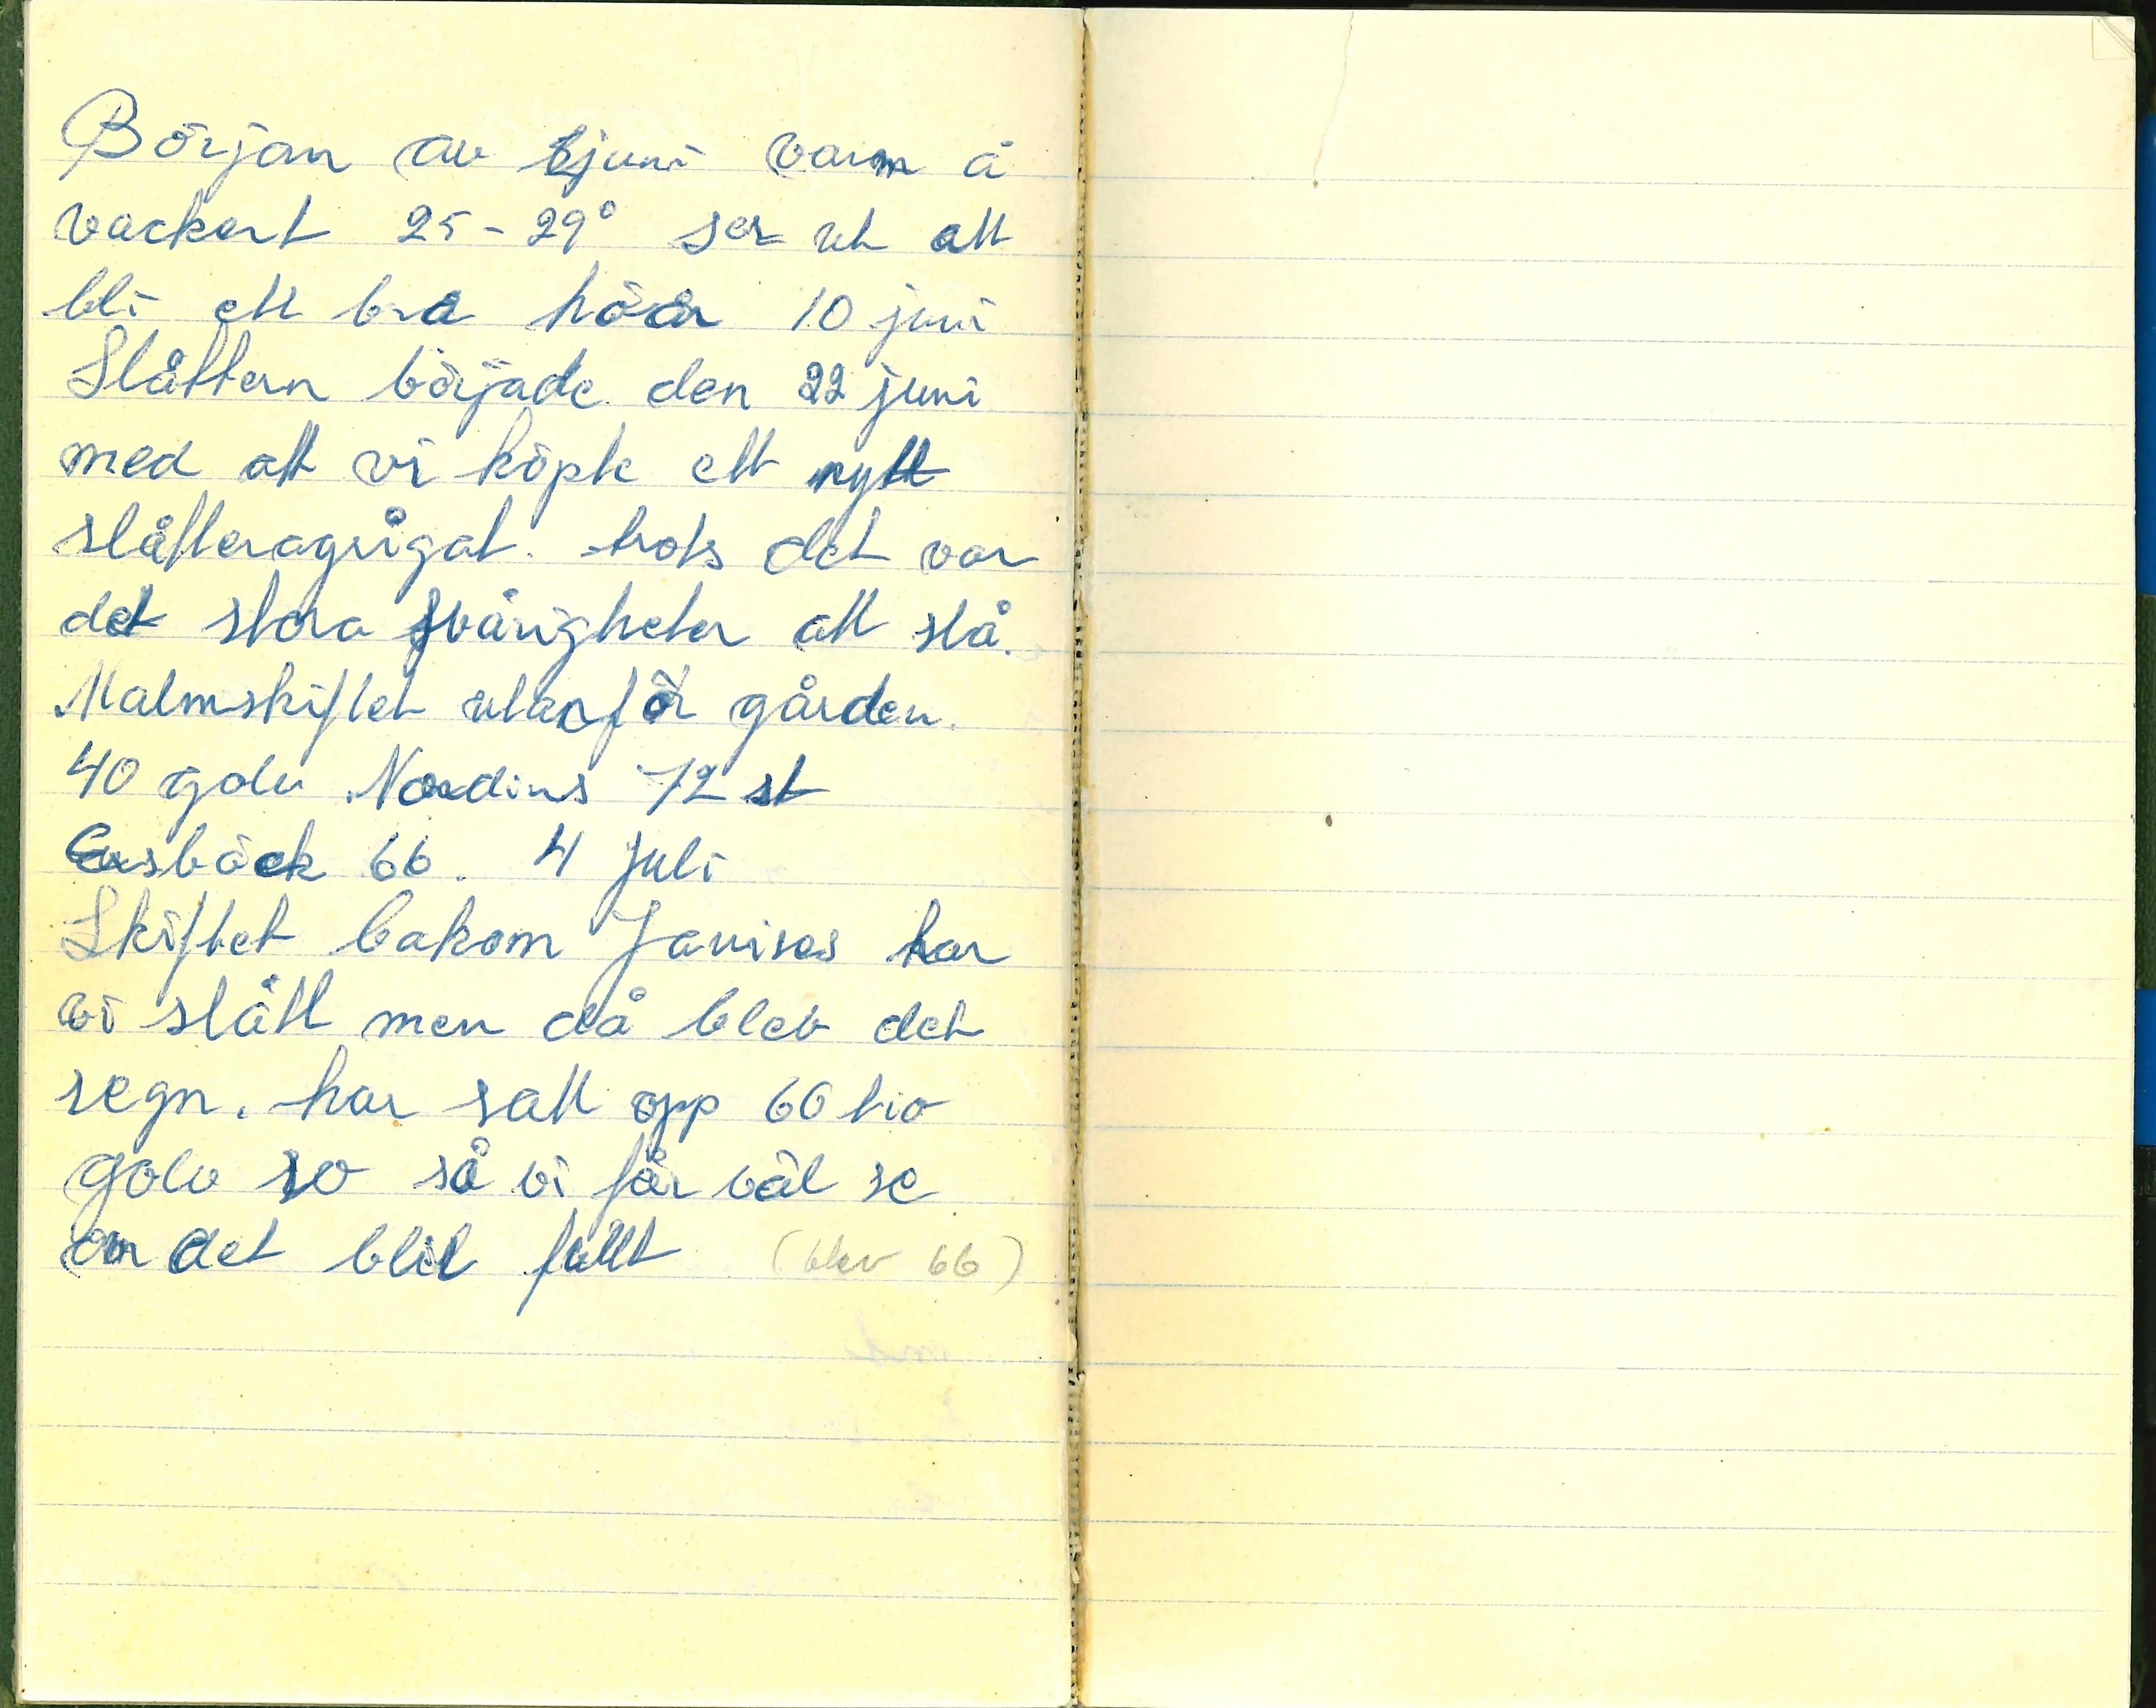 Början av juni varm å
vackert 25-29° ser ut att
bli ett bra höår 10 juni
Slåttern började den 22 juni
med att vi köpte ett nytt
slåtteragrigat. trots det var
det stora svårigheter att slå.
Malmskiftet utanför gården.
40 golv Nordins 72 st
66. 4 Juli
Skiftet bakom har
vi slått men då blev det
regn. har satt opp 60 tio
golv so så vi får väl se
om det blir fullt (blev 66)